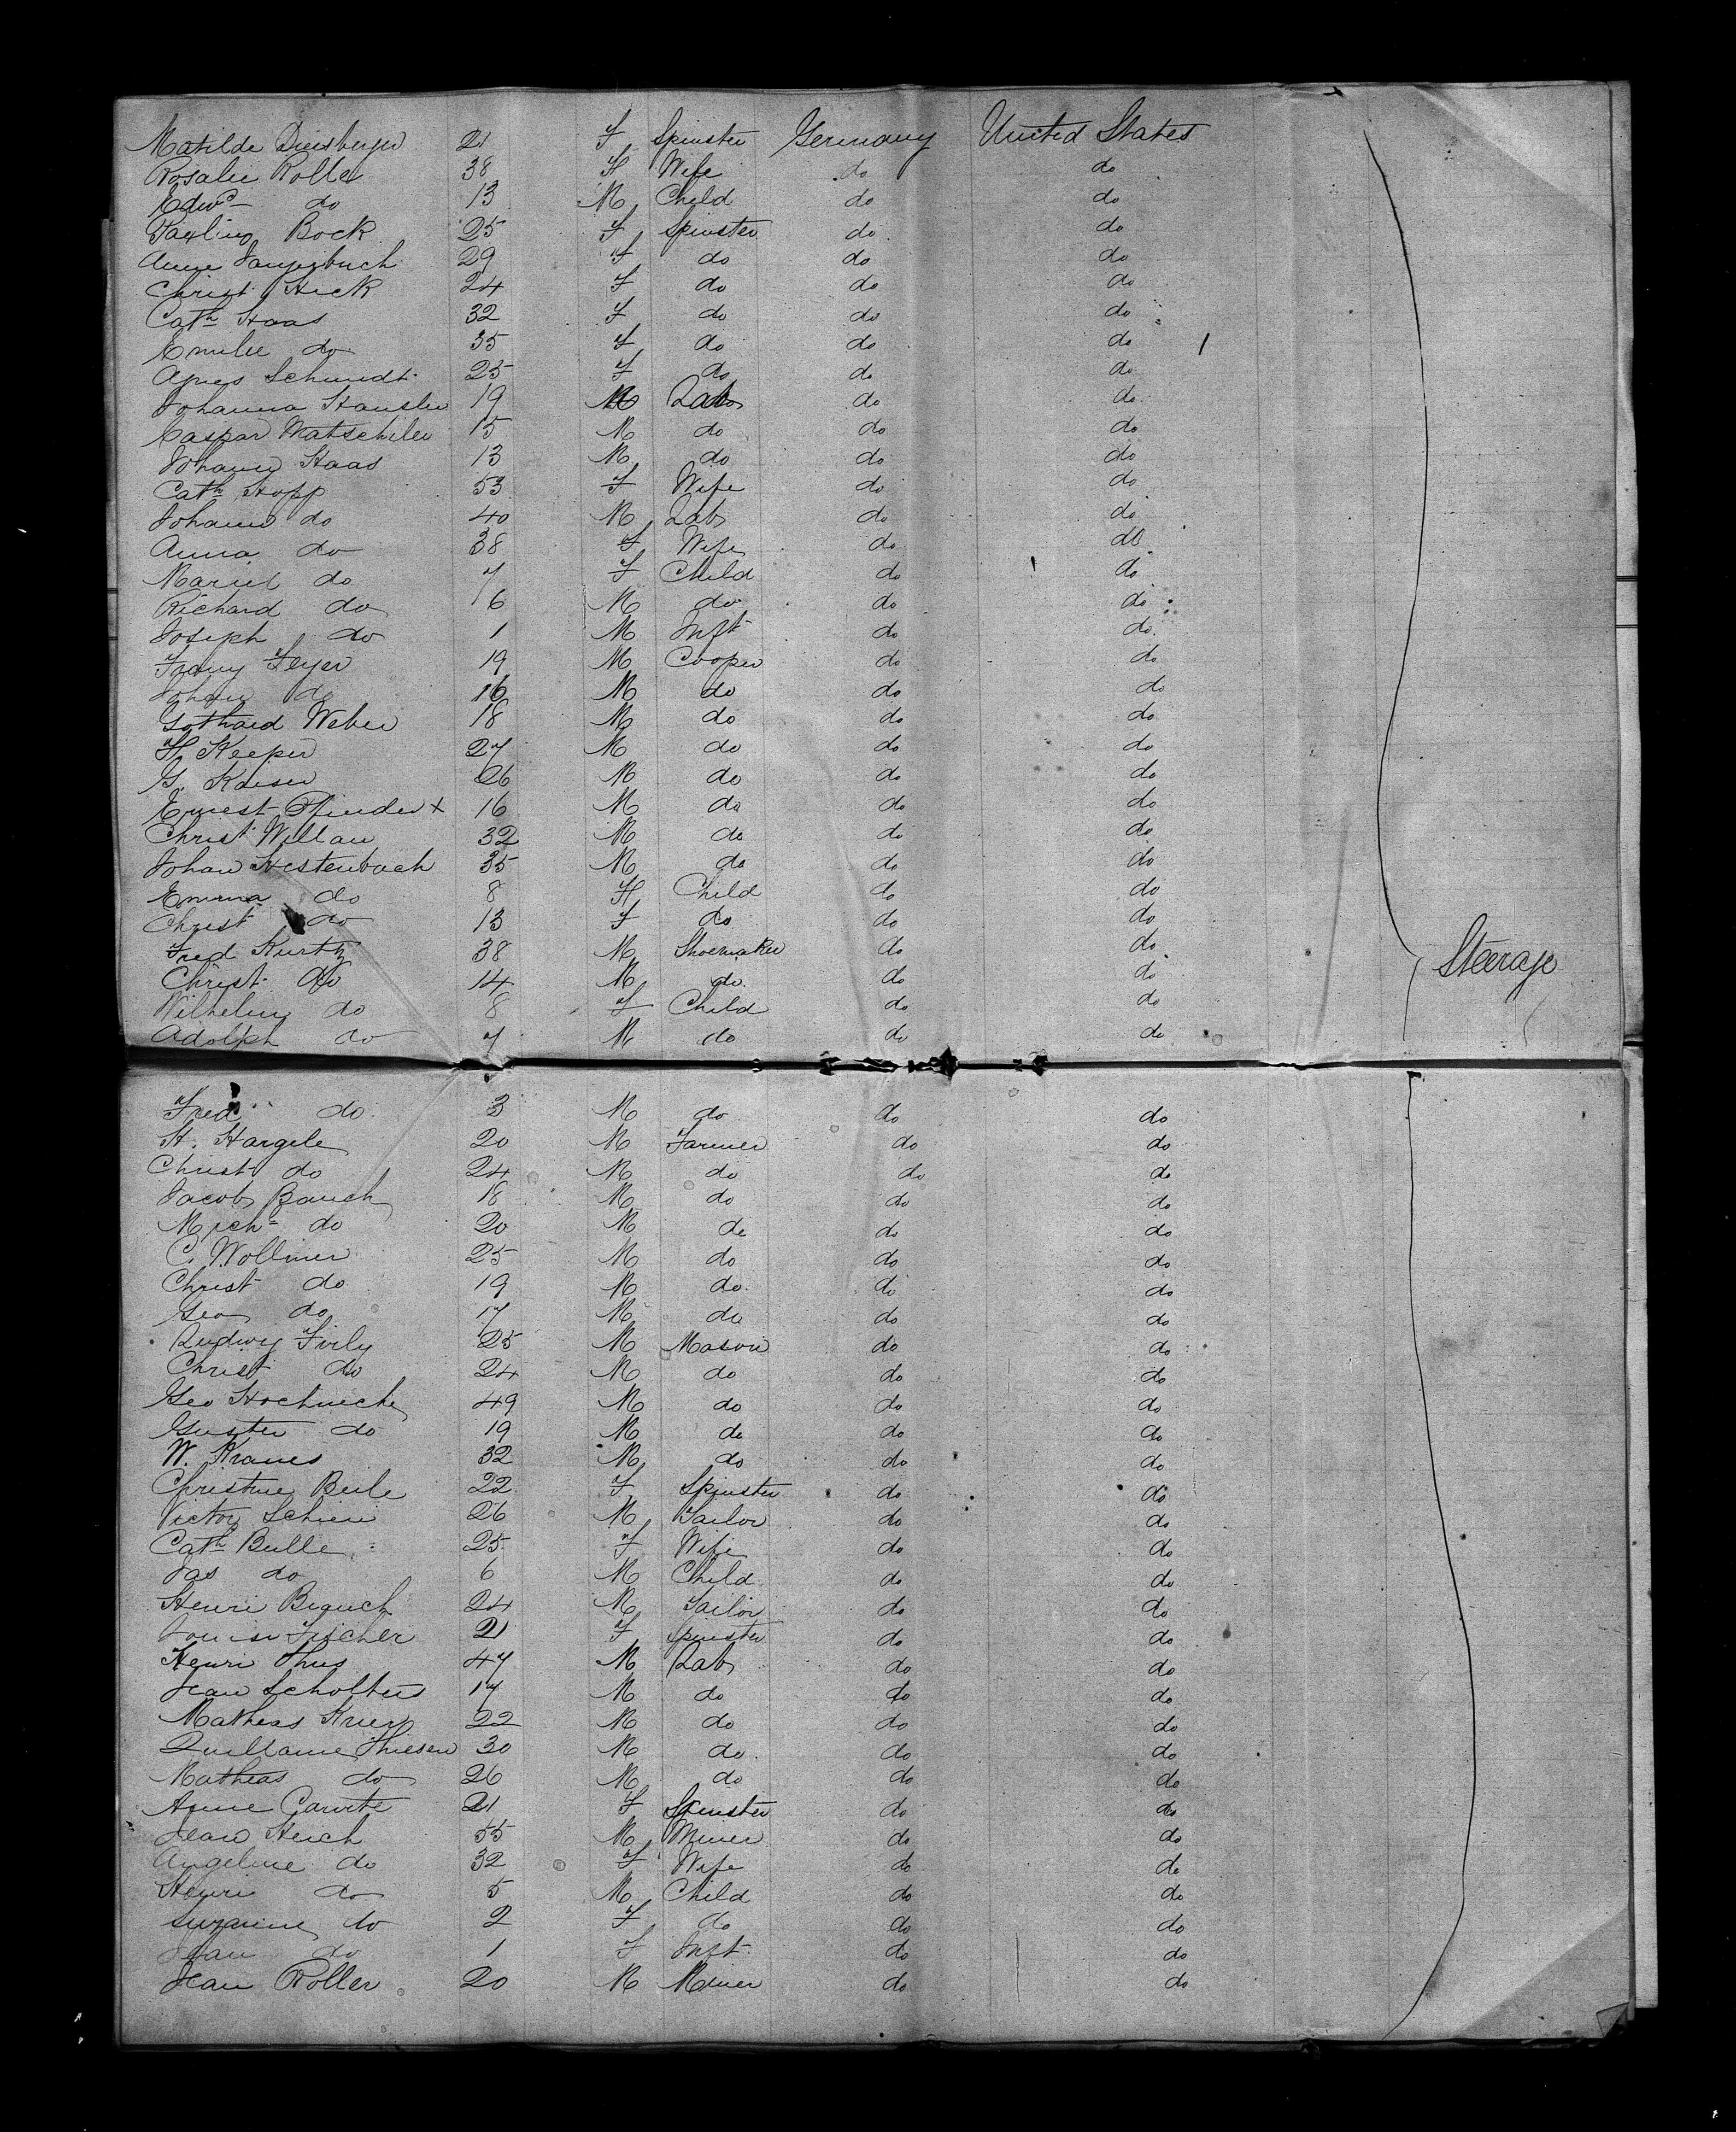 Matilde Diensberger 21 F Spinster Germany United States
Rosalie Roller 38 F Wife do do
Edwd do 13 M Child do do
Pauline Bock 25 F Spinster do do
Anne 29 F do do do
Christ. Hick 24 F do do do
Cath Haas 32 F do do do
Emilie do 35 F do do do
Agnes Schmidt 25 F do do do
Johanna Hansler 19 M Lab do do
Caspar Watschiler 15 M do do do
Johann Haas 13 M do do do
Cath Hopp 53 F Wife do do
Johann do 40 M Lab do do
Anna do 38 F Wife do do
Mariel do 7 F Child do do
Richard do 6 M do do do
Joseph do 1 M Inft do do
Franz Feyer 19 M Cooper do do
Johann do 16 M do do do
Gothard Weber 18 M do do do
H. Keeper 27 M do do do
G. Kaiser 26 M do do do
Ernest Pfinder x 16 M do do do
Christ Willan 32 M do do do
Johan Kestenbach 35 M do do do
Emma do 8 F Child do do
Christ do 13 F do do do
Fred Kurtz 38 M Shoemaker do do
Steerage
Christ. do 14 M do do do
Wilhelm do 8 F Child do do
Adolph do 7 M do do do
Fred do 3 M do do do
H. Hargele 20 M Farmer do do
Christ do 24 M do do do
Jacob Bauch 18 M do do do
Mich do 20 M do do do
C. Wollmer 25 M do do do
Christ do 19 M do do do
Geo do 17 M do do do
Ludwig Fvily 25 M Mason do do
Christ do 24 M do do do
Geo 49 M do do do
Guster do 19 M do do do
W. Kranes 32 M do do do
Christine Beile 22 F Spinster do do
Victor Schieri 26 M Tailor do do
Cath Bulle 25 F Wife do do
Jas do 6 M Child do do
Henri 24 M Tailor do do
Louise Fischer 21 F Spinster do do
Henri Thus 47 M Lab do do
Jean Scholtus 17 M do do do
Matheas Krier 22 M do do do
Guillaume Thiesen 30 M do do do
Matheas do 26 M do do do
Anne 21 F Spinster do do
Jean Heich 55 M Miner do do
Angeline do 32 F Wife do do
Henri do 5 M Child do do
Suzanne do 2 F do do do
Jean do 1 F Inft do do
Jean Roller 20 M Miner do do